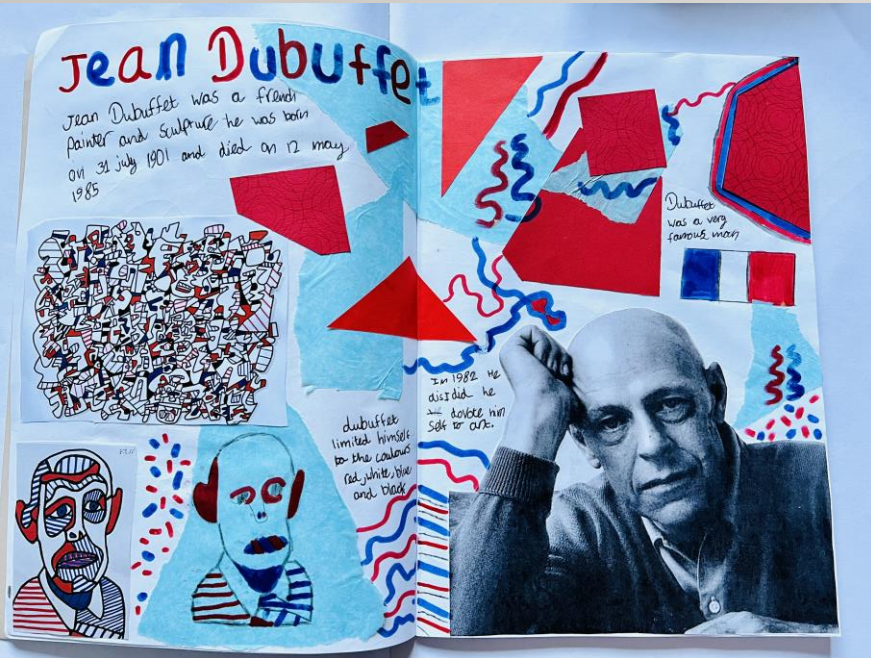 Jean Dubuffet
Jean Dubuffet was a french
painter and sculpture he was born
on 31 july 1901 and died on 12 may
1985
Dubuffet
was a very
famous man
In 1982 He
did he
devote him
self to art.
dubuffet
limited himself
to the colours
red, white, blue
and black